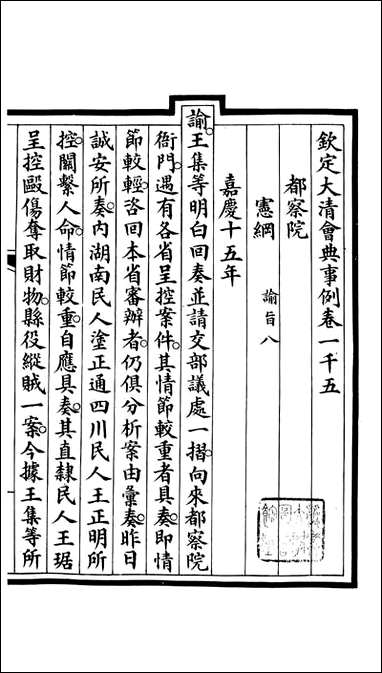 欽定大清會典事例卷一千五
都察院
憲綱 諭旨八
嘉慶十五年
諭王集等明白回奏並請交部議處一摺向來都察院
衙門遇有各省呈控案件其情節較重者具奏即情
節較輕咨回本省審辦者仍俱分析案由彙奏昨日
誠安所奏內湖南民人塗正通四川民人王正明所
控關繫人命情節較重自應具奏其直隸民人王琚
呈控毆傷奪取財物縣役縱賊一案今據王集等所